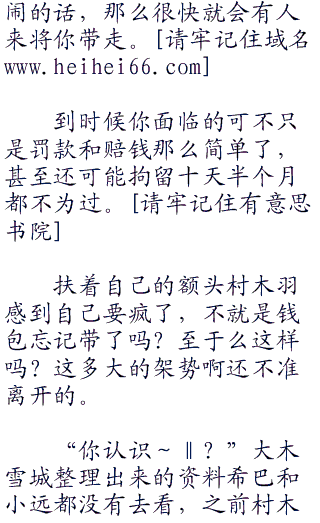 闹的话，那么很快就会有人
来将你带走。[请牢记住域名
www.heihei66.com]
到时候你面临的可不只
是罚款和赔钱那么简单了，
甚至还可能拘留十天半个月
都不为过。[请牢记住有意思
书院]
扶着自己的额头村木羽
感到自己要疯了，不就是钱
包忘记带了吗？至于么这样
吗？这多大的架势啊还不准
离开的。
“你认识～‖？”大木
雪城整理出来的资料希巴和
小远都没有去看，之前村木